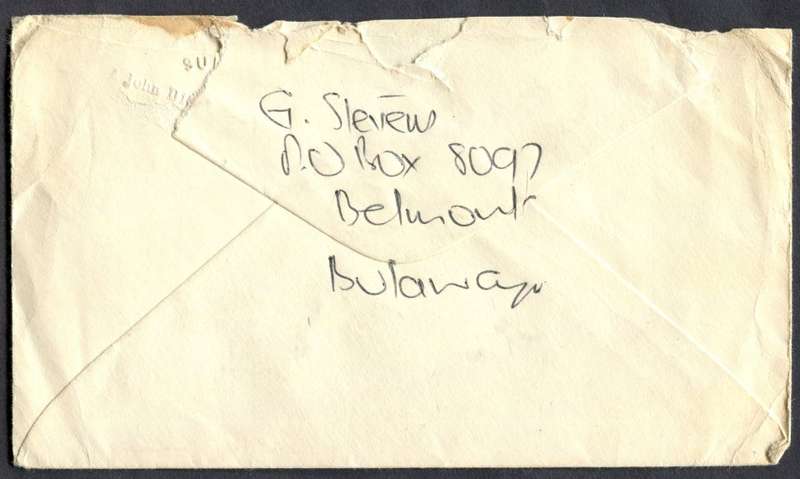 SU
John
G. Stevens
P.O Box 8097
Belmont
Bulawayo